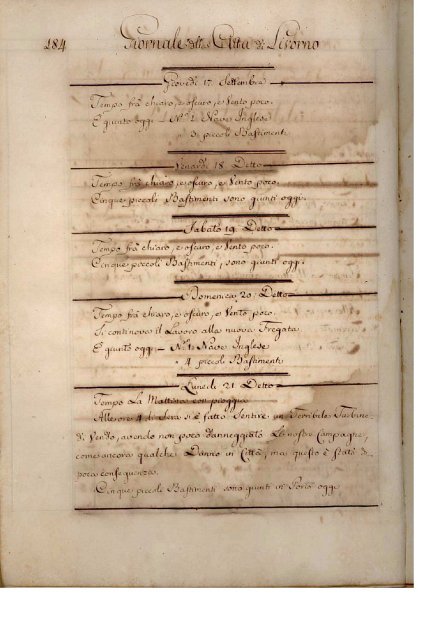 184 Giornale della Città di Livorno
Giovedì 17 Settembre
Tempo frà chiaro, e oscuro, e Vento poco.
È giunto oggi — N.º 1 Nave Inglese
" 3 piccoli Bastimenti
Venardì 18 Detto
Tempo frà chiaro, e oscuro, e Vento poco
Cinque piccoli Bastimenti sono giunti oggi.
Sabato 19 Detto
Tempo frà chiaro, e oscuro, e Vento poco.
Cinque piccoli Bastimenti, sono giunti oggi.
Domenica 20: Detto
Tempo frà chiaro, e oscuro, e Vento poco.
Si continova il Lavoro alla nuova Fregata
È giunto oggi — N.º 1: Nave Inglese
" 4 piccoli Bastimenti
Lunedì 21 Detto
Tempo La Mattina con pioggia
Alle ore 4 di Sera si è fatto Sentire un Terribile Turbine
di Vento, avendo non poco danneggiato Le nostre Campagne,
come ancora qualche Danno in Città, ma questo è stato di
poca conseguenza.
Cinque piccoli Bastimenti sono giunti in Porto oggi